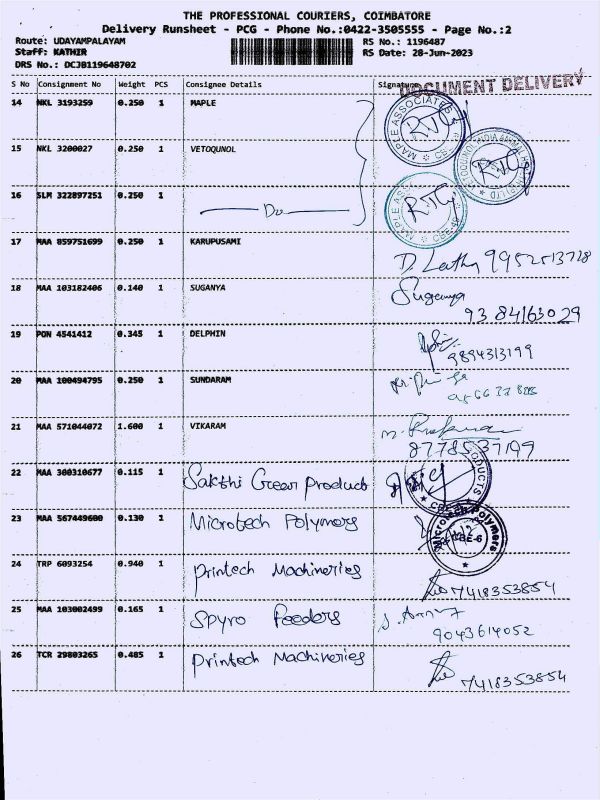 THE PROFESSIONAL COURIERS, COIMBATORE
Delivery Runsheet - PCG - Phone No.:0422-3505555 - Page No.:2
Route: UDAYAMPALAYAM RS No.: 1196487
Staff: KATHIR RS Date: 28-Jun-2023
DRS No.: DCJB119648702
DOCUMENT DELIVERY
S No Consignment No Weight PCS Consignee Details Signature
14 NKL 3193259 0.250 1 MAPLE
MAPLE ASSOCIATES
15 NKL 3200027 0.250 1 VETOQUNOL
16 SLM 322897251 0.250 1 Do
MAPLE
17 MAA 859751699 0.250 1 KARUPUSAMI
9952513728
18 MAA 103182406 0.140 1 SUGANYA Suganya
93 84163029
19 PON 4541412 0.345 1 DELPHIN
9894313199
20 MAA 100494795 0.250 1 SUNDARAM
21 MAA 571044072 1.600 1 VIKARAM
8778537199
22 MAA 300310677 0.115 1 Sakthi Green Product
23 MAA 567449600 0.130 1 Microtech Polymers
Microtech Polymers
CBE-6
24 TRP 6093254 0.940 1 Printech Machineries
7418353854
25 MAA 103002499 0.165 1 Spyro Feeders
9043614052
26 TCR 29803265 0.485 1 Printech Machineries
7418353854